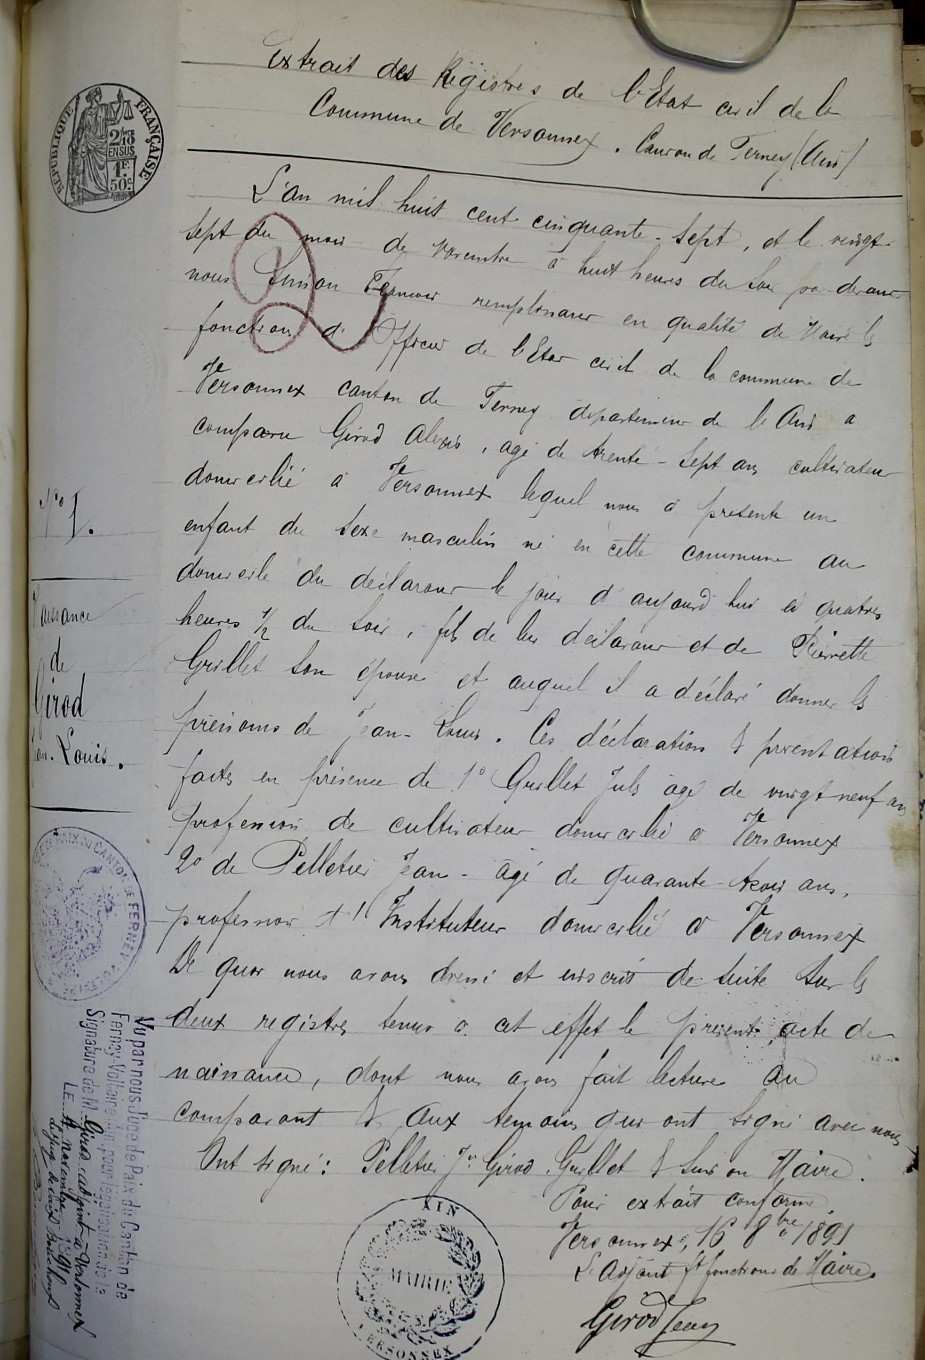 Extrait des Registres de l'Etat civil de la
Commune de Versonnex. Canton de Ferney (Ain)
RÉPUBLIQUE FRANÇAISE
2/10
EN SUS
1F.
50c.
L'an mil huit cent cinquante-sept, et le vingt-
sept du mois de novembre à huit heures du soir par devant
nous remplissant en qualité de Maire les
fonctions d'Officier de l'Etat civil de la commune de
Versonnex canton de Ferney departement de l'Ain a
comparu Girod Alexis, agé de trente-sept ans cultivateur
domicilié à Versonnex lequel nous a présenté un
enfant du sexe masculin né en cette commune au
domicile du déclarant le jour d'aujourd'hui à quatre
heures 1/2 du soir, fils de lui déclarant et de Pierrette
Grillet son épouse et auquel il a déclaré donner les
prénoms de Jean-Louis. Ces déclaration & présentation
faites en présence de 1° Grillet Jules agé de vingt neuf ans
profession de cultivateur domicilié à Versonnex
2° de Pelletier Jean - agé de quarante-trois ans,
profession d'Instituteur domicilié à Versonnex
De quoi nous avons dressé et inscrit de suite sur les
deux registres tenus à cet effet le présent acte de
naissance, dont nous avons fait lecture au
comparant & aux temoins qui ont signé avec nous
Ont signé: Pelletier Jn Girod Grillet & Maire.
Pour extrait conforme
Versonnex, 16 8bre 1891
L'adjoint ft fonctions de Maire.
Girod Jean
N° 1.
Naissance
de
Girod
Jean-Louis.
DE PAIX DU CANTON DE FERNEY
Vu par nous Juge de Paix du Canton de
Ferney-Voltaire Ain pour légalisation de la
Signature de M. Girod adjoint à Versonnex
LE novembre
AIN
MAIRIE
VERSONNEX